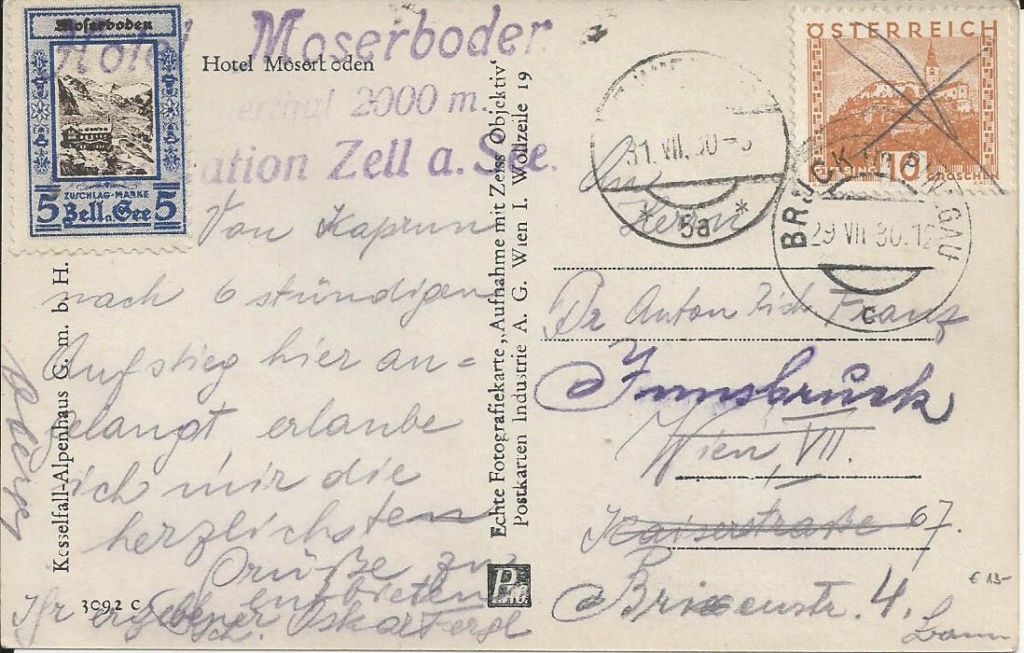 Moserboden
5 ZUSCHLAG-MARKE 5
Zell a. See
Hotel Moserboden
Hotel Moserboden
2000 m.
Station Zell a. See.
Kesselfall-Alpenhaus G. m. b. H.
Von Kaprun
nach 6 stündigen
Aufstieg hier an=
gelangt erlaube
ich mir die
herzlichsten
Grüße zu
entbieten
Ihr ergebener Oskar
3092 C
Echte Fotografiekarte „Aufnahme mit Zeiss Objektiv‘
Postkarten Industrie A. G. Wien I. Wollzeile 19
P.AG.
31. VII. 30-
* 5a *
ÖSTERREICH
10 GROSCHEN
BRUCK I. PINZGAU
29 VII 30. 12
c
An
Herrn
Dr Anton Franz
Innsbruck
Wien, VII.
Kaiserstraße 67.
Brixenstr. 4.
€ 13-